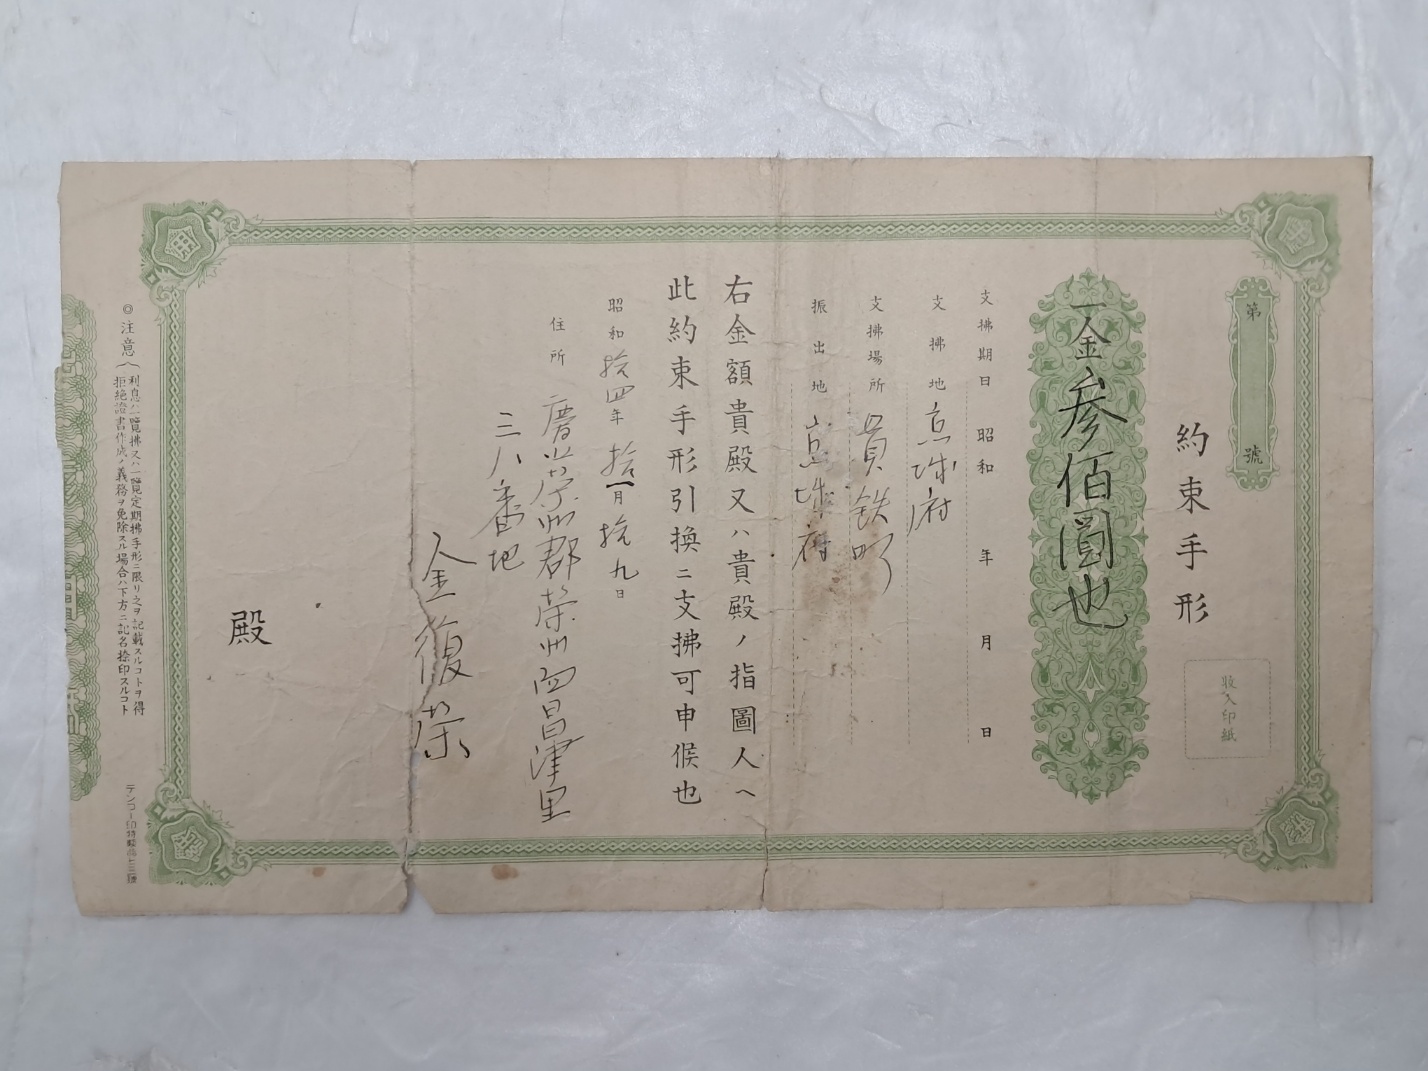 第 號
約束手形
收入印紙
一金參佰圓也
支拂期日 昭和 年 月 日
支拂地 京城府
支拂場所 黃鉄町
振出地 京城府
右金額貴殿又ハ貴殿ノ指圖人ヘ
此約束手形引換ニ支拂可申候也
昭和拾四年拾一月拾九日
住所 慶北榮州郡榮州面昌津里
三八番地
金復榮
殿
◎注意
利息ハ一覽拂又ハ一覽定期拂手形ニ限リ之ヲ記載スルコトヲ得
拒絕證書作成ノ義務ヲ免除スル場合ハ下方ニ記名捺印スルコト